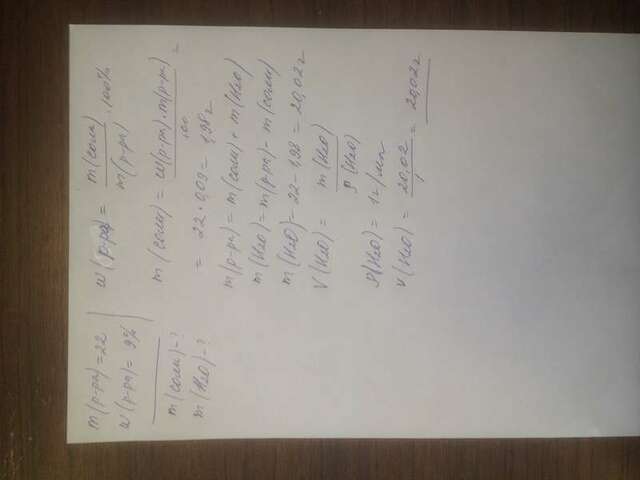 m(р-ра) = 22
w(р-ра) = 9%
m(соли) - ?
m(H₂O) - ?
w(р-ра) = m(соли) / m(р-ра) · 100%
m(соли) = w(р-ра) · m(р-ра) / 100 =
= 22 · 0,09 = 1,98 г
m(р-ра) = m(соли) + m(H₂O)
m(H₂O) = m(р-ра) - m(соли)
m(H₂O) - 22 - 1,98 = 20,02 г
V(H₂O) = m(H₂O) / ρ(H₂O)
ρ(H₂O) = 1 г/мл
V(H₂O) = 20,02 / 1 = 20,02 г